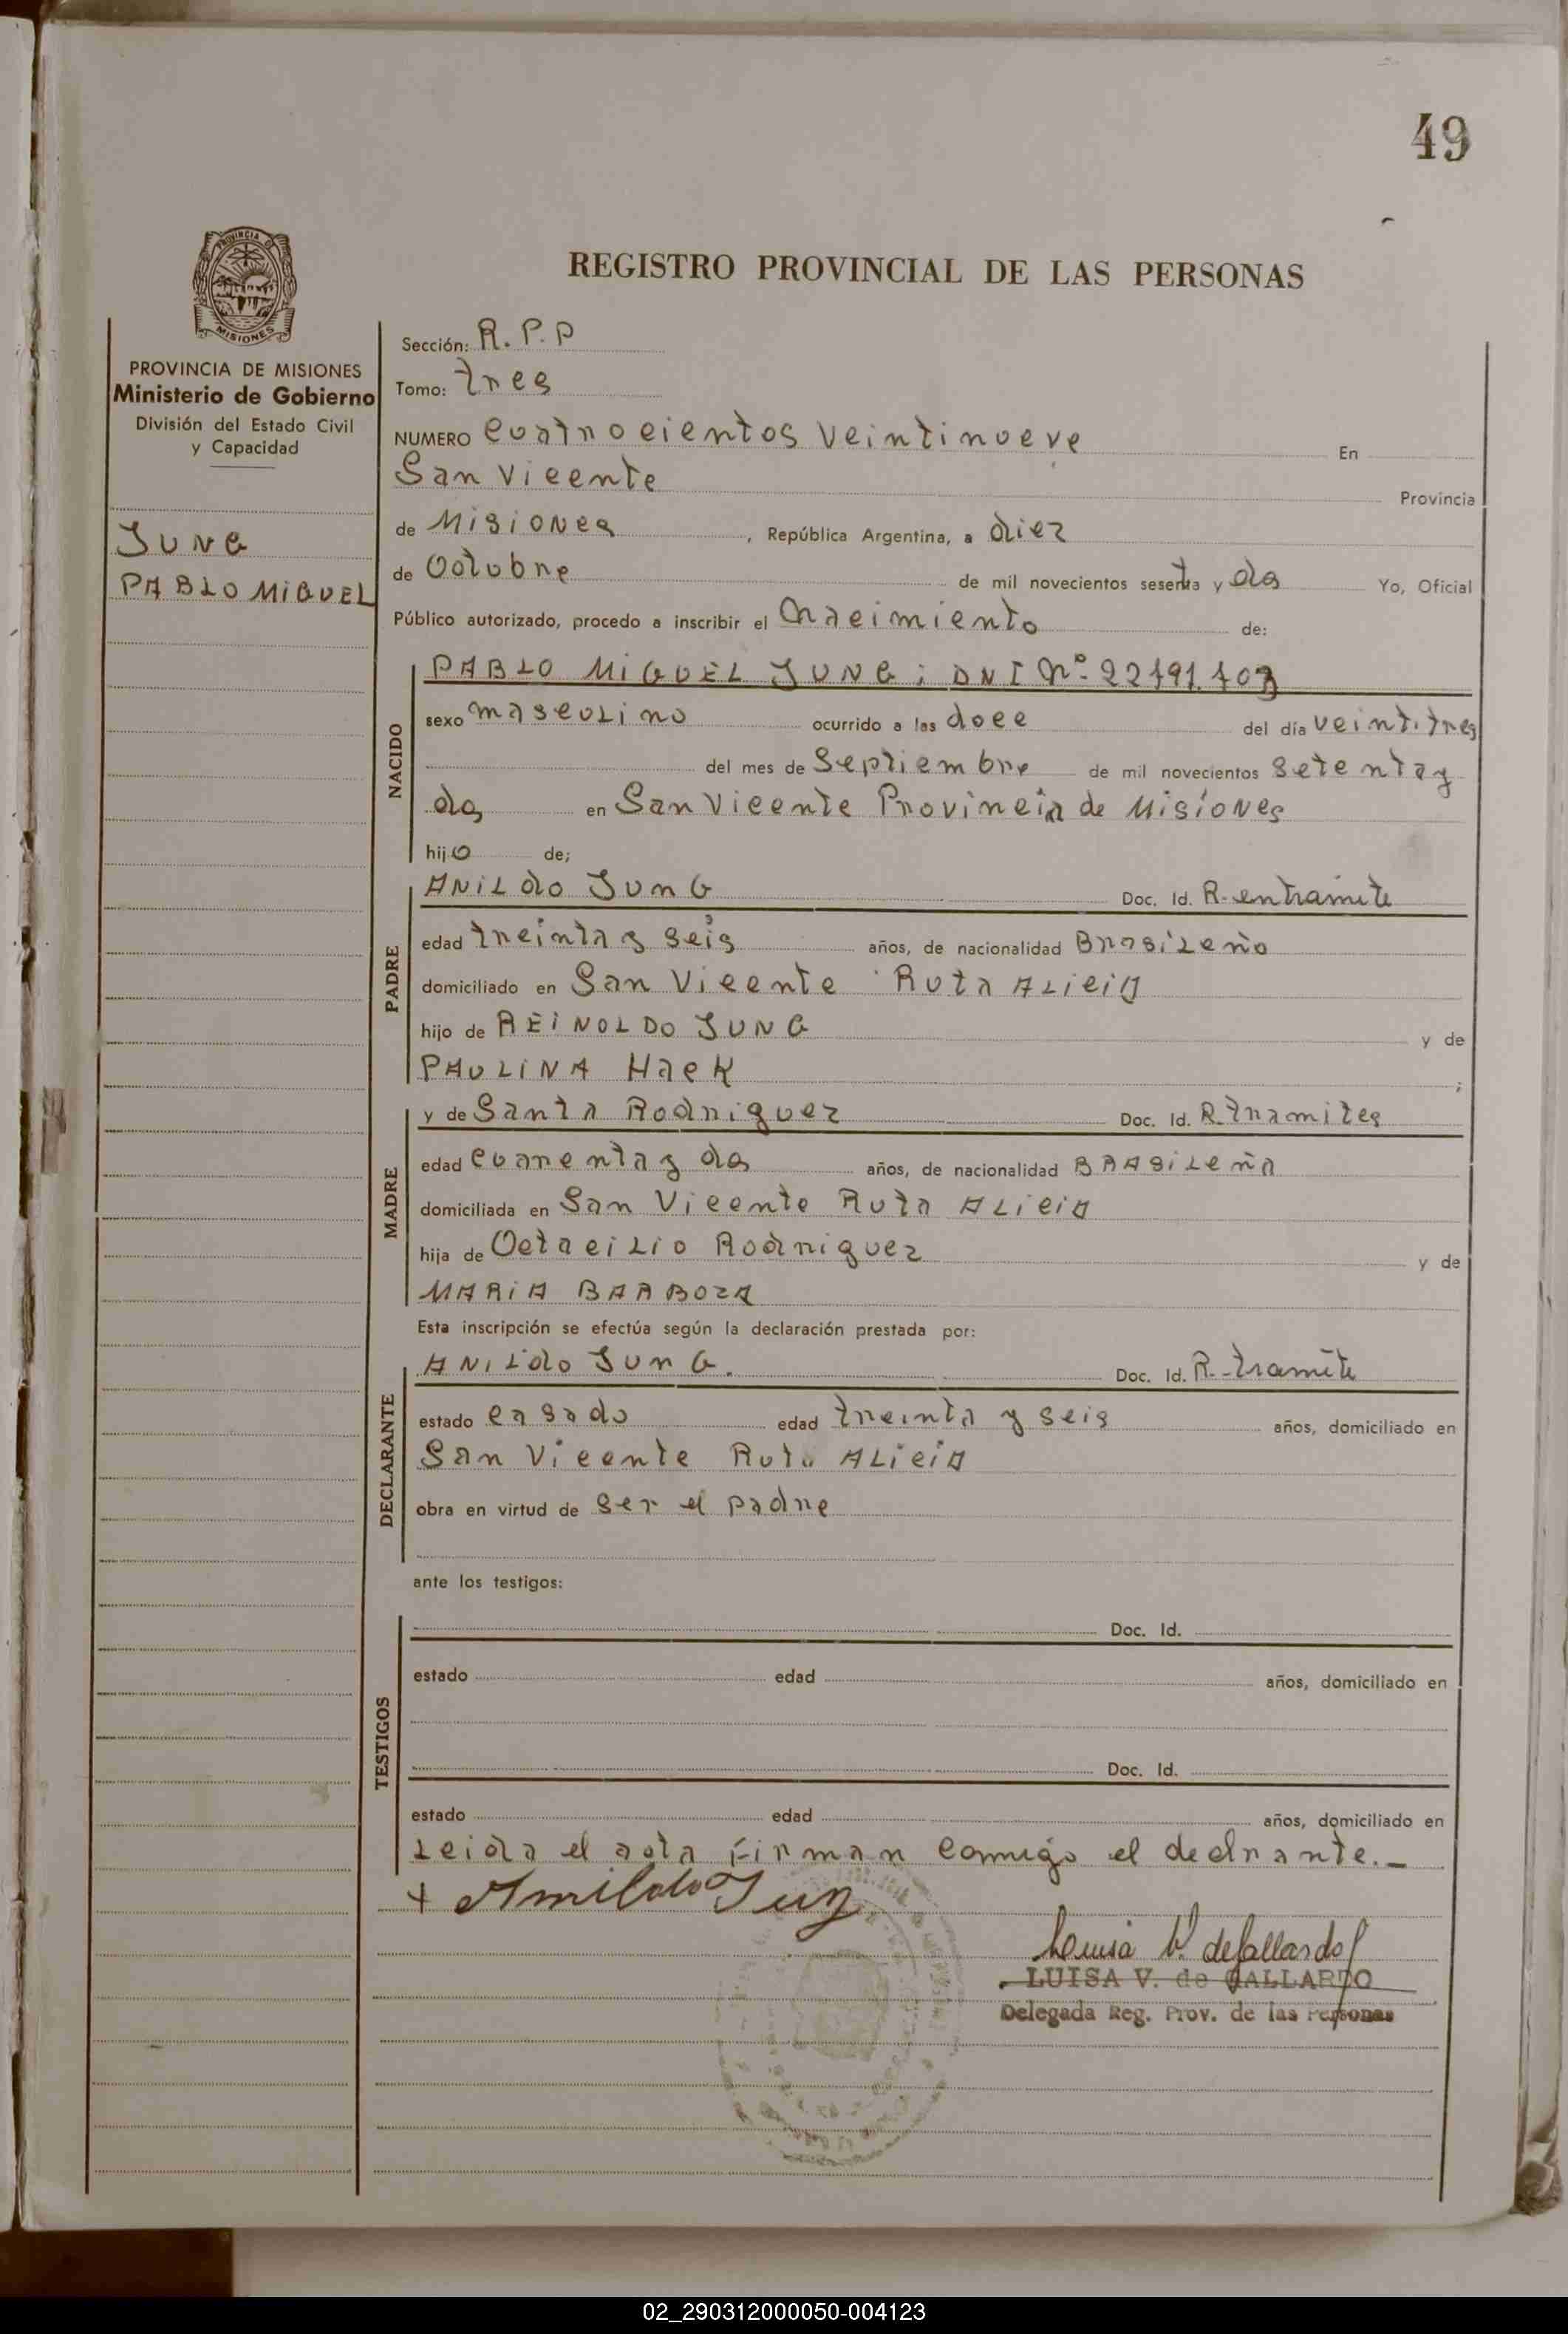 49
REGISTRO PROVINCIAL DE LAS PERSONAS
PROVINCIA DE MISIONES
Ministerio de Gobierno
División del Estado Civil
y Capacidad
JUNG
PABLO MIGUEL
Sección: R.P.P
Tomo: tres
NUMERO cuatrocientos veintinueve En
San Vicente Provincia
de Misiones, República Argentina, a diez
de Octubre de mil novecientos setenta y dos Yo, Oficial
Público autorizado, procedo a inscribir el Nacimiento de:
NACIDO
PABLO MIGUEL JUNG; DNI Nº 22491.403
sexo masculino ocurrido a las doce del día veintitres
del mes de Septiembre de mil novecientos setenta y
dos en San Vicente Provincia de Misiones
hijo de;
PADRE
ANILdo JUNG Doc. Id. R. en tramite
edad treinta y seis años, de nacionalidad Brasileño
domiciliado en San Vicente Ruta Alicia
hijo de REINOLDO JUNG y de
PAULINA Hack ;
MADRE
y de Santa Rodriguez Doc. Id. R. tramites
edad cuarenta y dos años, de nacionalidad BRASiLeña
domiciliada en San Vicente Ruta ALicia
hija de Octacilio Rodriguez y de
MARIA BARBOZA
Esta inscripción se efectúa según la declaración prestada por:
DECLARANTE
ANILdo JUNG. Doc. Id. R. tramite
estado casado edad treinta y seis años, domiciliado en
San Vicente Ruta ALicia
obra en virtud de ser el padre
ante los testigos:
TESTIGOS
Doc. Id.
estado edad años, domiciliado en
Doc. Id.
estado edad años, domiciliado en
Leida el acta firman conmigo el declrante.-
+ Amildo Jung
Louisa V. de Gallardo
LUISA V. de GALLARDO
Delegada Reg. Prov. de las Personas
02_290312000050-004123